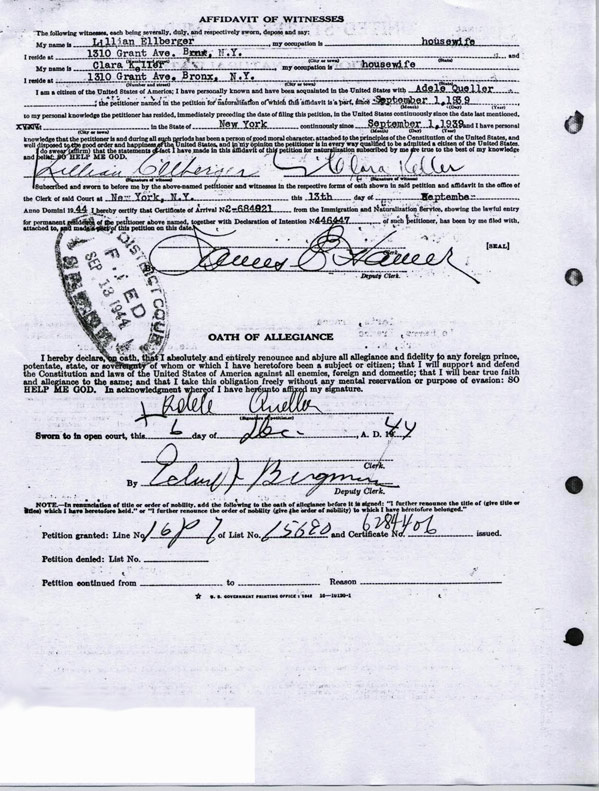 AFFIDAVIT OF WITNESSES
The following witnesses, each being severally, duly, and respectively sworn, depose and say:
My name is Lillian Ellberger, my occupation is housewife
I reside at 1310 Grant Ave. Bronx, N.Y. and
(City or town) (State)
My name is Clara Keller, my occupation is housewife
I reside at 1310 Grant Ave. Bronx, N.Y.
(Number and street) (City or town) (State)
I am a citizen of the United States of America; I have personally known and have been acquainted in the United States with Adele Queller
, the petitioner named in the petition for naturalization of which this affidavit is a part, since September 1, 1939
(Month) (Day) (Year)
to my personal knowledge the petitioner has resided, immediately preceding the date of filing this petition, in the United States continuously since the date last mentioned,
in the State of New York continuously since September 1, 1939 and I have personal
(City or town) (Month) (Day) (Year)
knowledge that the petitioner is and during all such periods has been a person of good moral character, attached to the principles of the Constitution of the United States, and
well disposed to the good order and happiness of the United States, and in my opinion the petitioner is in every way qualified to be admitted a citizen of the United States.
I do swear (affirm) that the statements of fact I have made in this affidavit of this petition for naturalization subscribed by me are true to the best of my knowledge
and belief. SO HELP ME GOD.
Lillian Ellberger Clara Keller
(Signature of witness) (Signature of witness)
Subscribed and sworn to before me by the above-named petitioner and witnesses in the respective forms of oath shown in said petition and affidavit in the office of
the Clerk of said Court at New York, N.Y. this 13th day of September
Anno Domini 1944 I hereby certify that Certificate of Arrival No 2-684821 from the Immigration and Naturalization Service, showing the lawful entry
for permanent residence of the petitioner above named, together with Declaration of Intention No 446447 of such petitioner, has been by me filed with,
attached to, and made a part of this petition on this date.
[SEAL]
Deputy Clerk.
DISTRICT COURT
FILED
SEP 13 1944
OATH OF ALLEGIANCE
I hereby declare, on oath, that I absolutely and entirely renounce and abjure all allegiance and fidelity to any foreign prince,
potentate, state, or sovereignty of whom or which I have heretofore been a subject or citizen; that I will support and defend
the Constitution and laws of the United States of America against all enemies, foreign and domestic; that I will bear true faith
and allegiance to the same; and that I take this obligation freely without any mental reservation or purpose of evasion: SO
HELP ME GOD. In acknowledgment whereof I have hereunto affixed my signature.
Adele Queller
(Signature of petitioner)
Sworn to in open court, this 6 day of Dec., A. D. 1944
Clerk.
By Bergman
Deputy Clerk.
NOTE.—In renunciation of title or order of nobility, add the following to the oath of allegiance before it is signed: "I further renounce the title of (give title or
titles) which I have heretofore held," or "I further renounce the order of nobility (give the order of nobility) to which I have heretofore belonged."
Petition granted: Line No. of List No. 15680 and Certificate No. 6284406 issued.
Petition denied: List No.
Petition continued from to Reason
U. S. GOVERNMENT PRINTING OFFICE : 1942